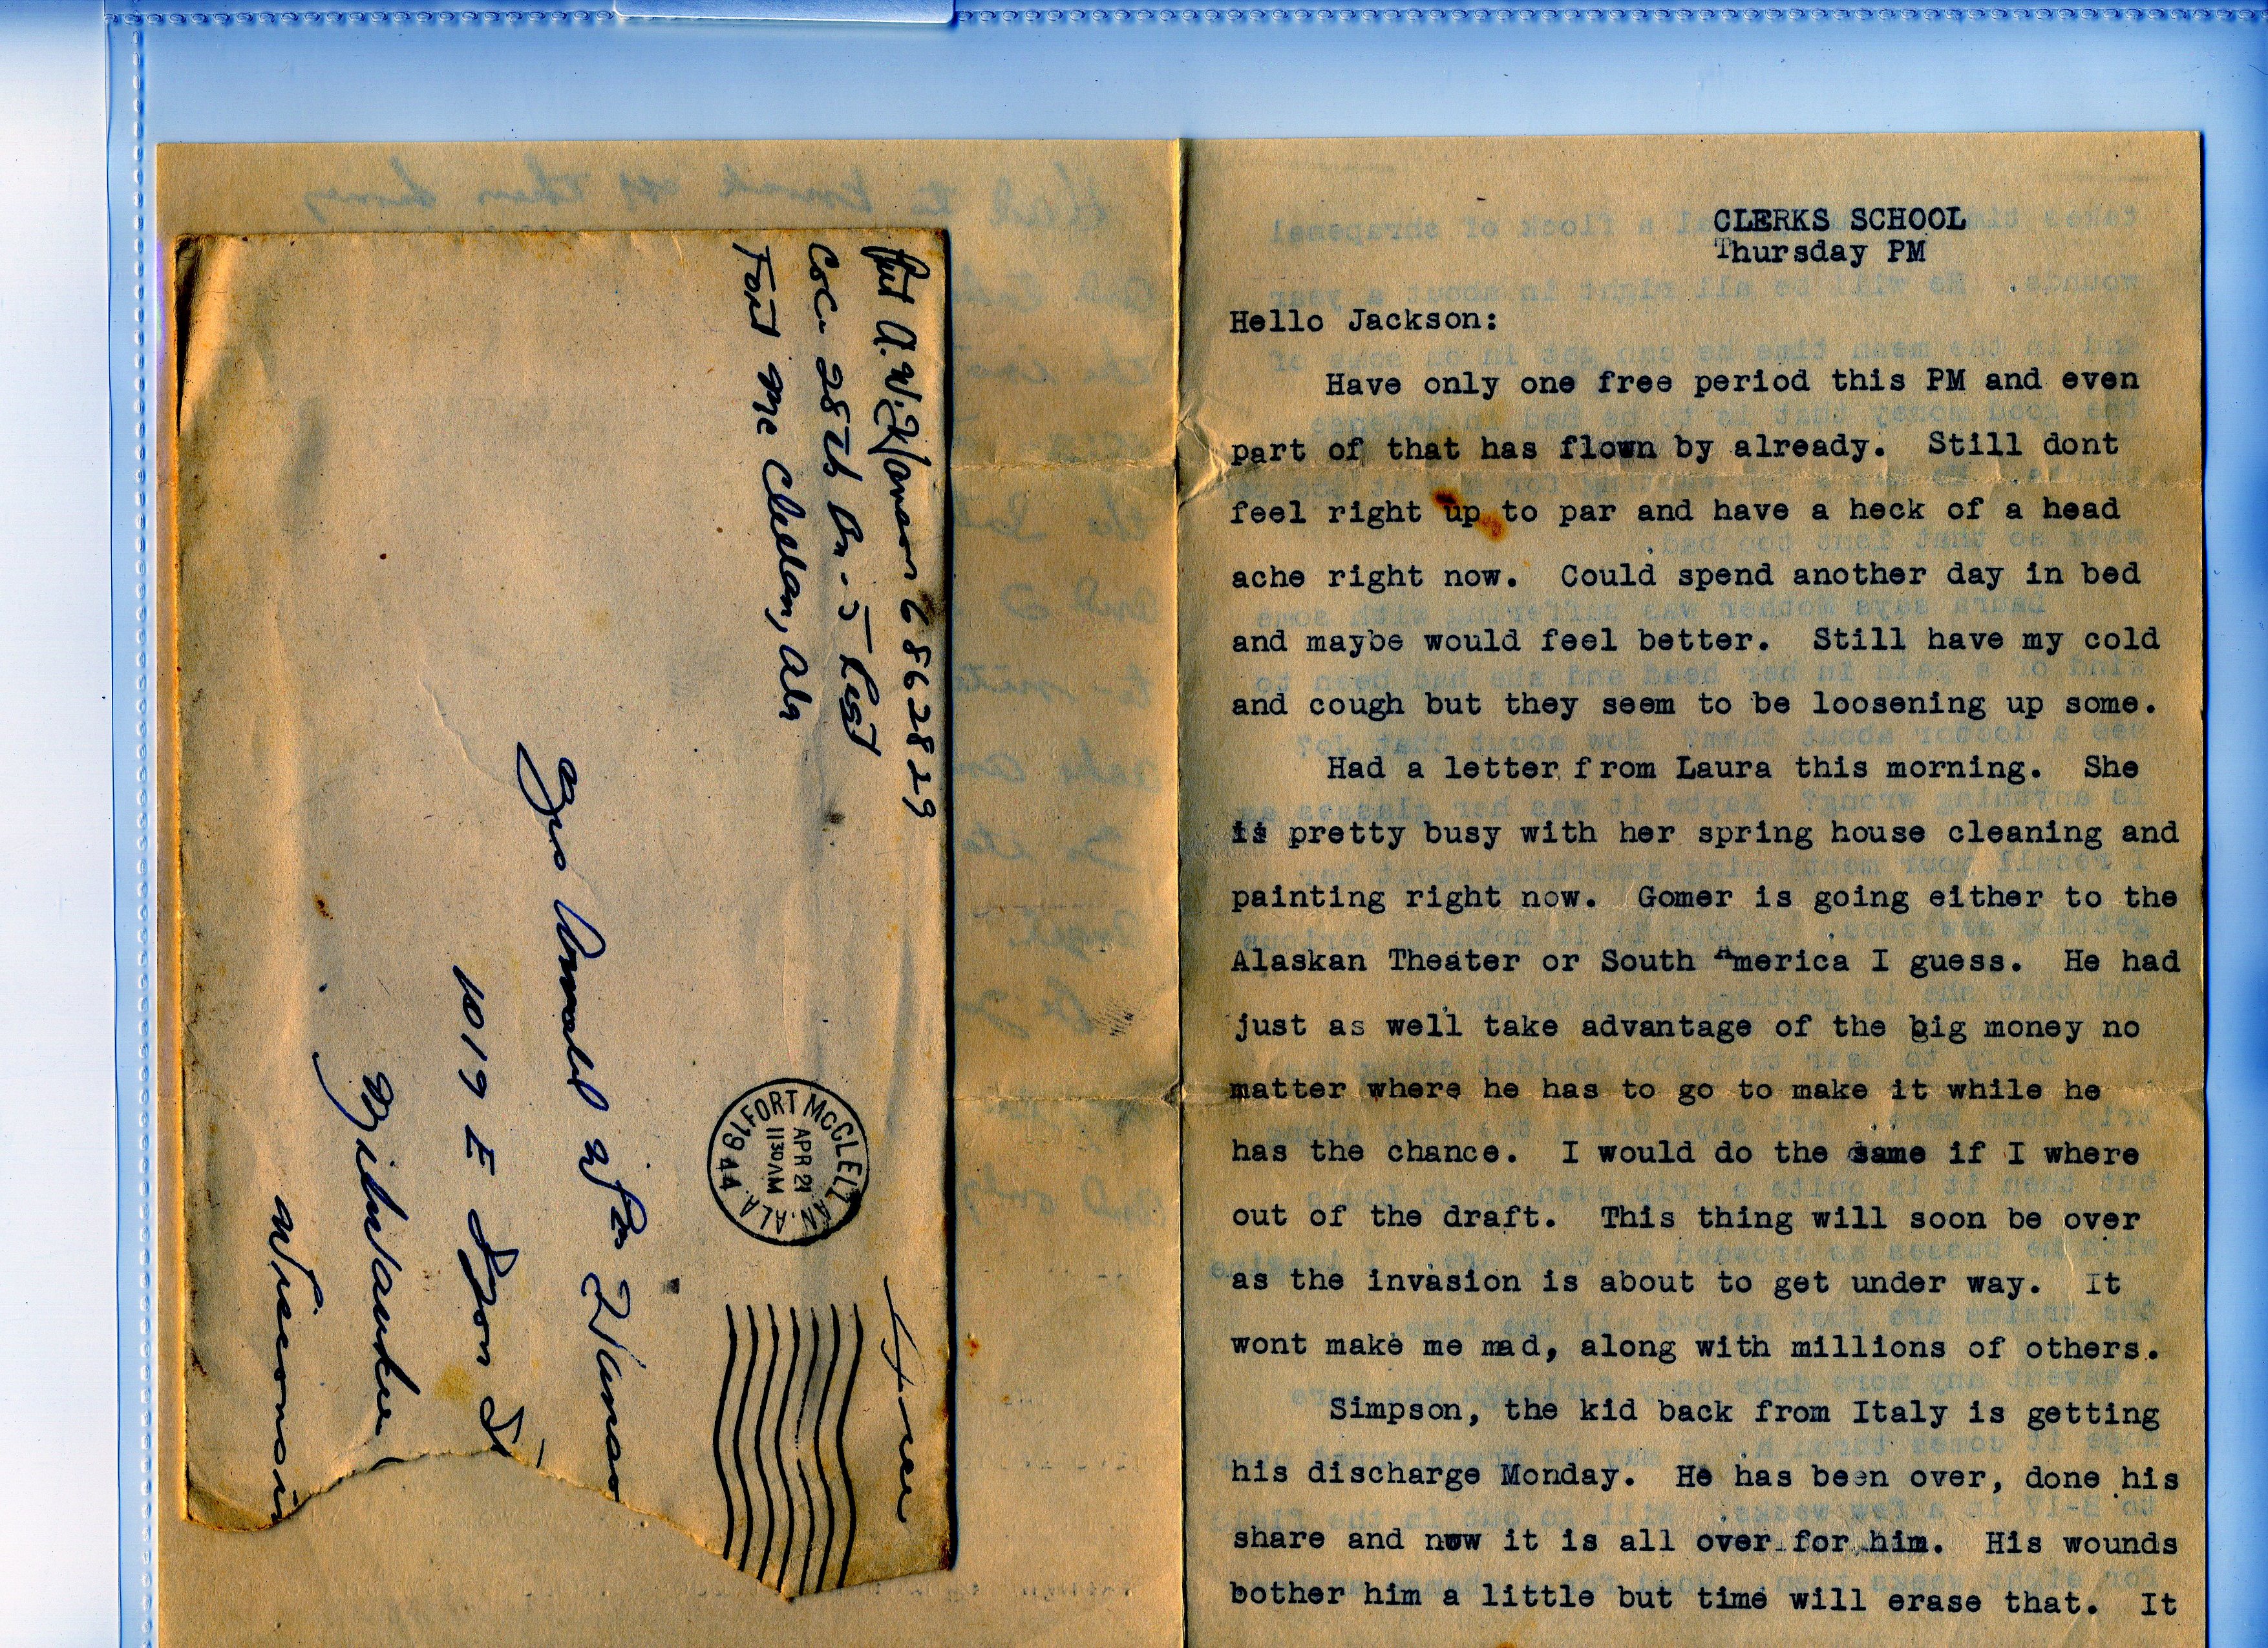 Pvt A. W. 6862829
Co C. 28th Bn. - 5th Regt
Fort Mc Clellan, Ala
Free
FORT McCLELLAN, ALA.
APR 21
1130 AM
1944
1019 E St
Milwaukee
Wisconsin
CLERKS SCHOOL
Thursday PM
Hello Jackson:
Have only one free period this PM and even
part of that has flown by already. Still dont
feel right up to par and have a heck of a head
ache right now. Could spend another day in bed
and maybe would feel better. Still have my cold
and cough but they seem to be loosening up some.
Had a letter from Laura this morning. She
is pretty busy with her spring house cleaning and
painting right now. Gomer is going either to the
Alaskan Theater or South America I guess. He had
just as well take advantage of the big money no
matter where he has to go to make it while he
has the chance. I would do the same if I where
out of the draft. This thing will soon be over
as the invasion is about to get under way. It
wont make me mad, along with millions of others.
Simpson, the kid back from Italy is getting
his discharge Monday. He has been over, done his
share and now it is all over for him. His wounds
bother him a little but time will erase that. It